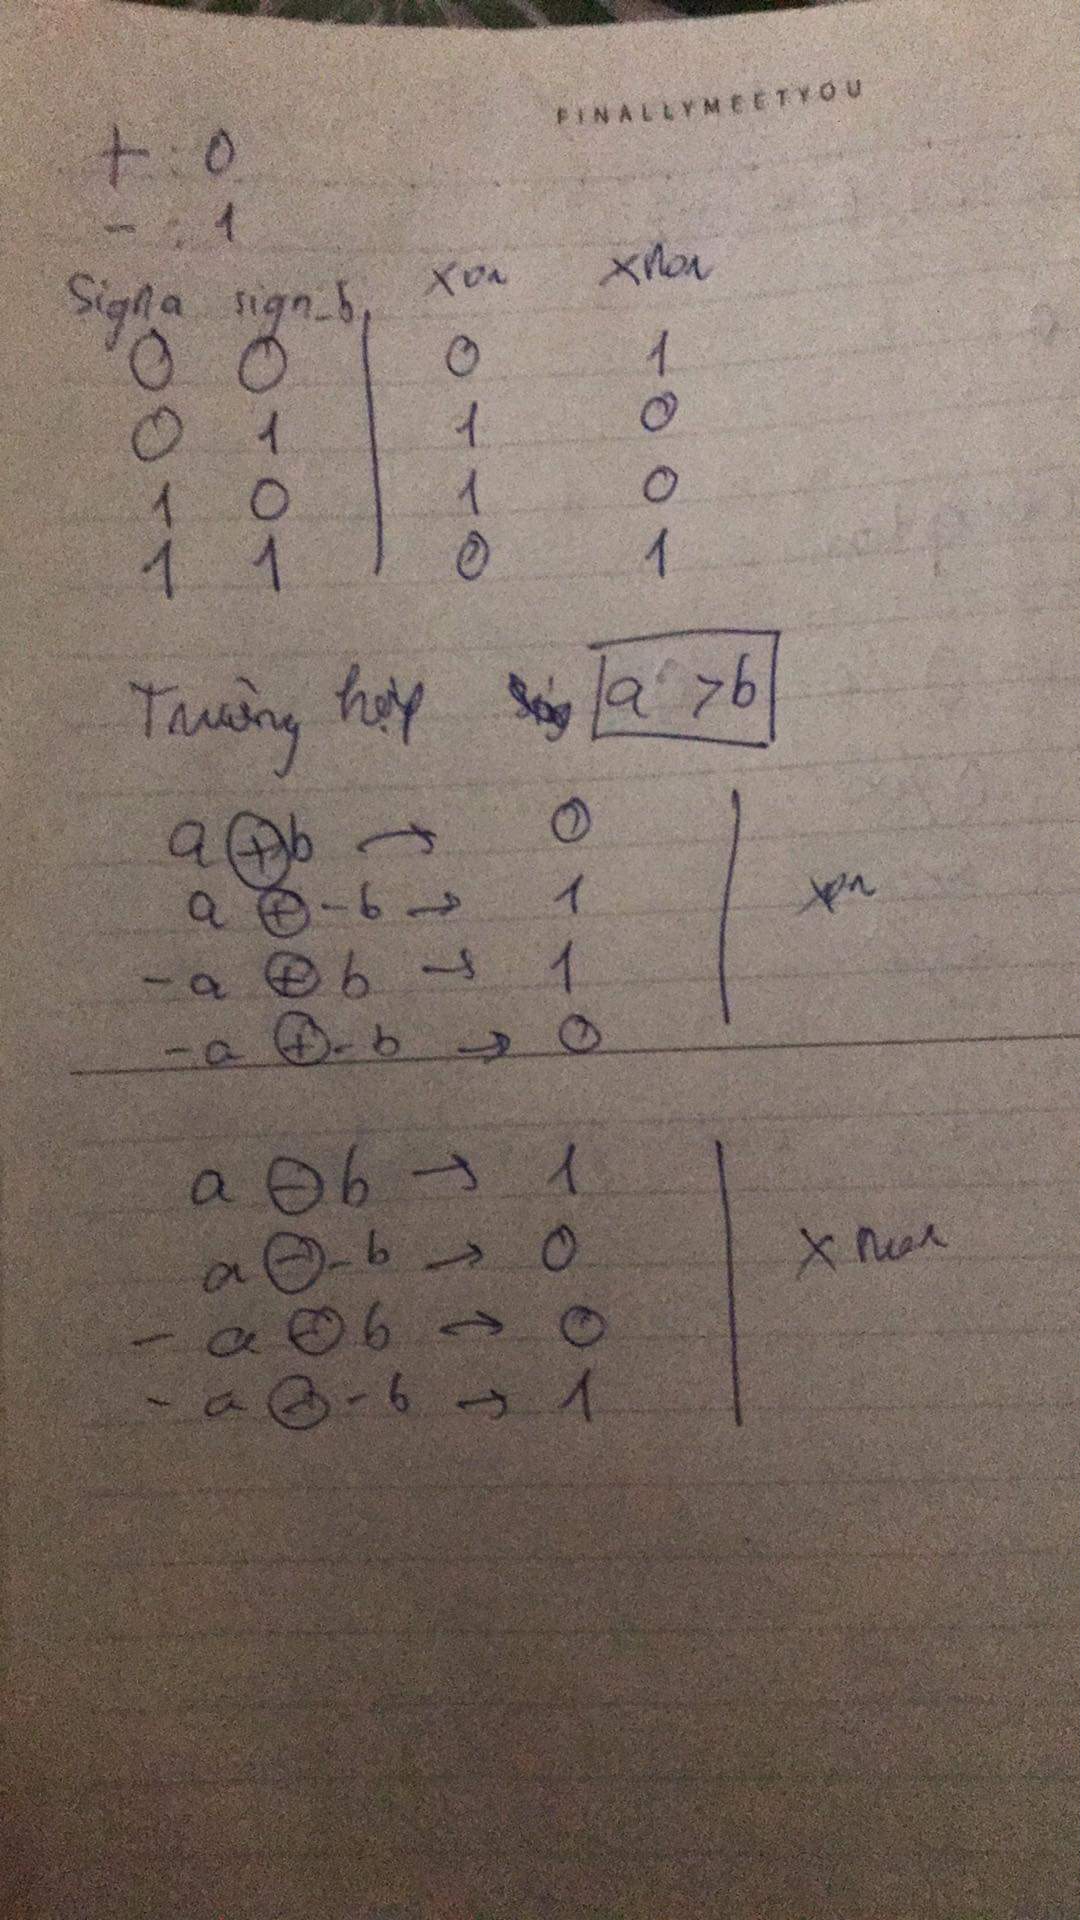 FINALLYMEETYOU
+ : 0
- : 1
Signa sign_b xor xnor
0 0 0 1
0 1 1 0
1 0 1 0
1 1 0 1
Trường hợp a > b
a ⊕ b → 0
a ⊕ -b → 1 xor
-a ⊕ b → 1
-a ⊕ -b → 0
a ⊖ b → 1
a ⊖ -b → 0 xnor
- a ⊖ b → 0
- a ⊖ -b → 1